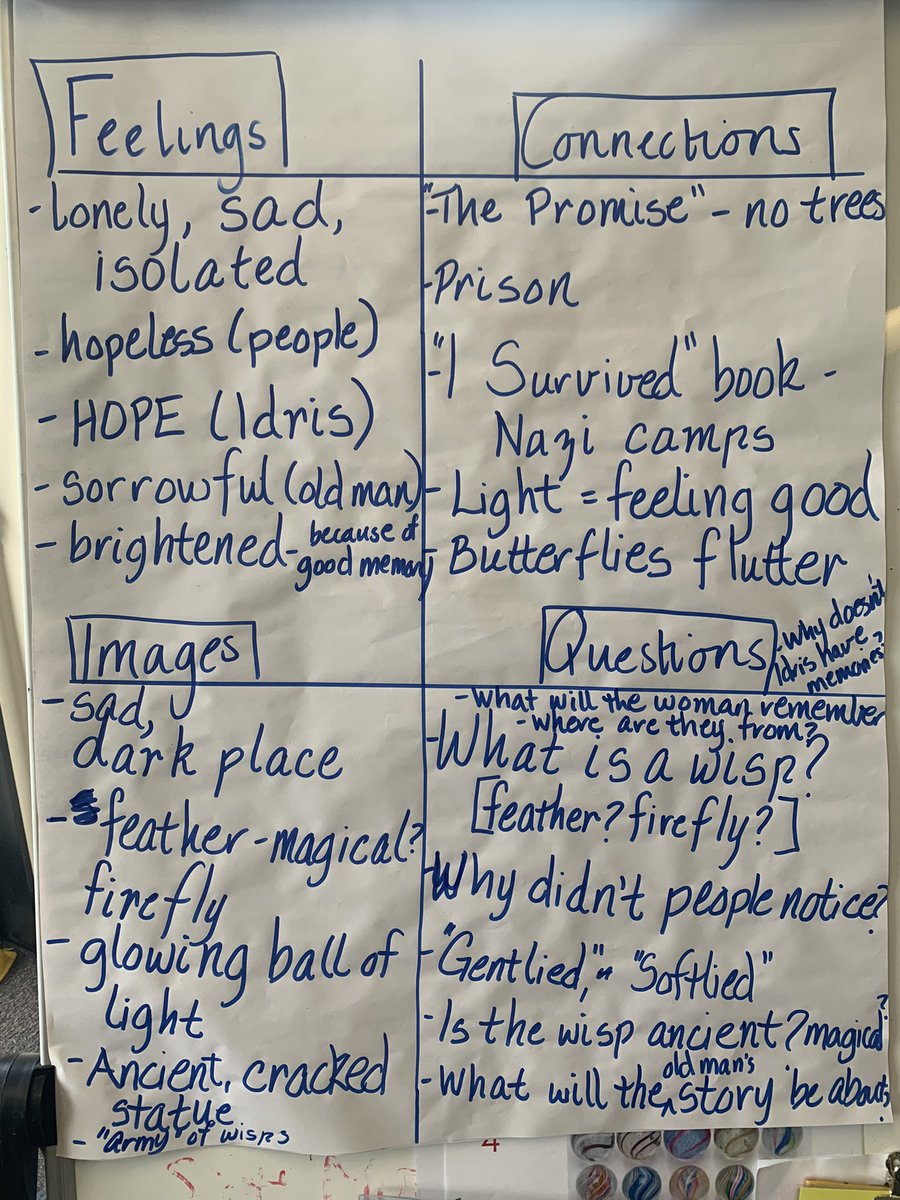 Feelings
- lonely, sad,
isolated
- hopeless (people)
- HOPE (Idris)
- sorrowful (old man)
- brightened - because of
good memory
Connections
- "The Promise" - no trees
- Prison
- "I Survived" book -
Nazi camps
- Light = feeling good
- Butterflies flutter
Images
- sad,
dark place
- feather - magical?
firefly
- glowing ball of
light
- Ancient, cracked
statue
- "Army" of wisps
Questions
- Why doesn't
Idris have
memories?
- What will the woman remember
- Where are they from?
- What is a wisp?
[feather? firefly?]
- Why didn't people notice?
- "Gentlied," "Softlied"
- Is the wisp ancient? magical?
- What will the old man's story be about?
4